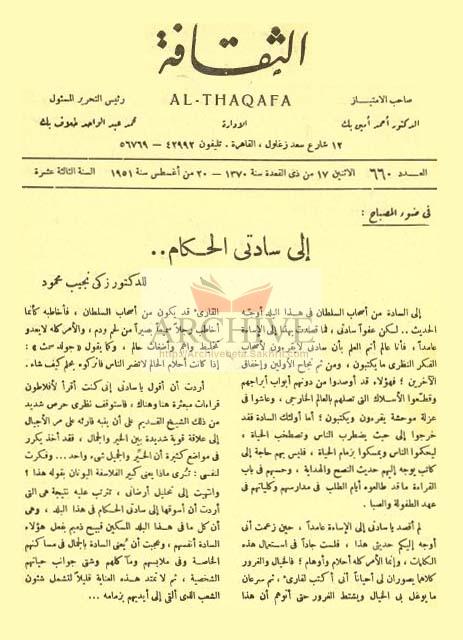 الثقافة
AL-THAQAFA
صاحب الامتياز
الدكتور أحمد أمين بك
الإدارة
رئيس التحرير المسئول
محمد عبد الواحد خلاف بك
١٢ شارع سعد زغلول ، القاهرة . تليفون ٤٢٩٩٢ — ٥٦٧٦٩
العدد ٦٦٠
الاثنين ١٧ من ذى القعدة سنة ١٣٧٠ — ٢٠ من أغسطس سنة ١٩٥١
السنة الثالثة عشرة
فى ضوء المصباح :
إلى سادتى الحكام ..
للدكتور زكى نجيب محمود
ARCHIVE
http://Archivebeta.Sakhrit.com
إلى السادة من أصحاب السلطان فى هذا البلد أوجه
الحديث .. لكن عفواً سادتى ، فما قصدت بهذا إلى الإساءة
عامداً ، فأنا عالم أتم العلم بأن سادتى لا يقرءون لأصحاب
الفكر النظرى ما يكتبون ، ومن ثم نجاح الأولين وإخفاق
الآخرين ؛ فهؤلاء قد أوصدوا من دونهم أبواب أبراجهم
وقطّعوا الأسلاك التى تصلهم بالعالم الخارجى ، وعاشوا فى
عزلة موحشة يقرءون ويكتبون ؛ أما أولئك السادة فقد
خرجوا إلى حيث يضطرب الناس وتصطخب الحياة ،
ليحكموا الناس ويمسكوا بزمام الحياة ، فليس بهم حاجة إلى
كاتب يوجه إليهم حديث النصح والهداية ، وحسبهم فى باب
القراءة ما قد طالعوه أيام الطلب فى مدارسهم وكلياتهم فى
عهد الطفولة والصبا .
لم أقصد يا سادتى إلى الإساءة عامداً ، حين زعمت أنى
أوجه إليكم حديثى هذا ، فلست جاداً فى استعمال هذه
الكلمات ، وإنما الأمر كله أحلام وأوهام ؛ فالخيال والغرور
كلاهما يصوران لى أحياناً أنى أكتب لقارئ ، ثم سرعان
ما يوغل بى الخيال ويشتط الغرور حتى أتوهم أن هذا
القارئ قد يكون من أصحاب السلطان ، فأخاطبه كأنما
أخاطب رجلاً سميعاً بصيراً من لحم ودم ، والأمر كله لا يعدو
تخليط واهم وأضغاث حالم ، وكما يقول «جولد سمث» :
إذا كانت أحلام الحالم لا تضير الناس فاتركوه يحلم كيف شاء .
أردت أن أقول يا سادتى إنى كنت أقرأ لأفلاطون
قراءات مبعثرة هنا وهناك ، فاستوقف نظرى حرص شديد
من ذلك الشيخ القديم على أن ينبه قارئه على مر الأجيال
إلى علاقة قوية شديدة بين الخير والجمال ، فقد أخذ يكرر
فى مواضع كثيرة أن الخيّر والجميل شىء واحد ... وفكرت
لنفسى : تُرى ماذا يعنى كبير الفلاسفة اليونان بقوله هذا ؟
وانتهيت إلى تحليل أرضانى ، تترتب عليه نتيجة هى التى
أردت أن أسوقها إلى سادتى الحكام فى هذا البلد ، وهى
أن كل ما فى هذا البلد المسكين قبيح ذميم بفعل هؤلاء
السادة أنفسهم ، وعجبت أن يُعنى السادة بالجمال فى مساكنهم
الخاصة وفى ملابسهم ومآكلهم وشتى جوانب حياتهم
الشخصية ، ثم لا تمتد هذه العناية قليلاً لتشمل شئون
الشعب الذى ألقى إلى أيديهم بزمامه ...